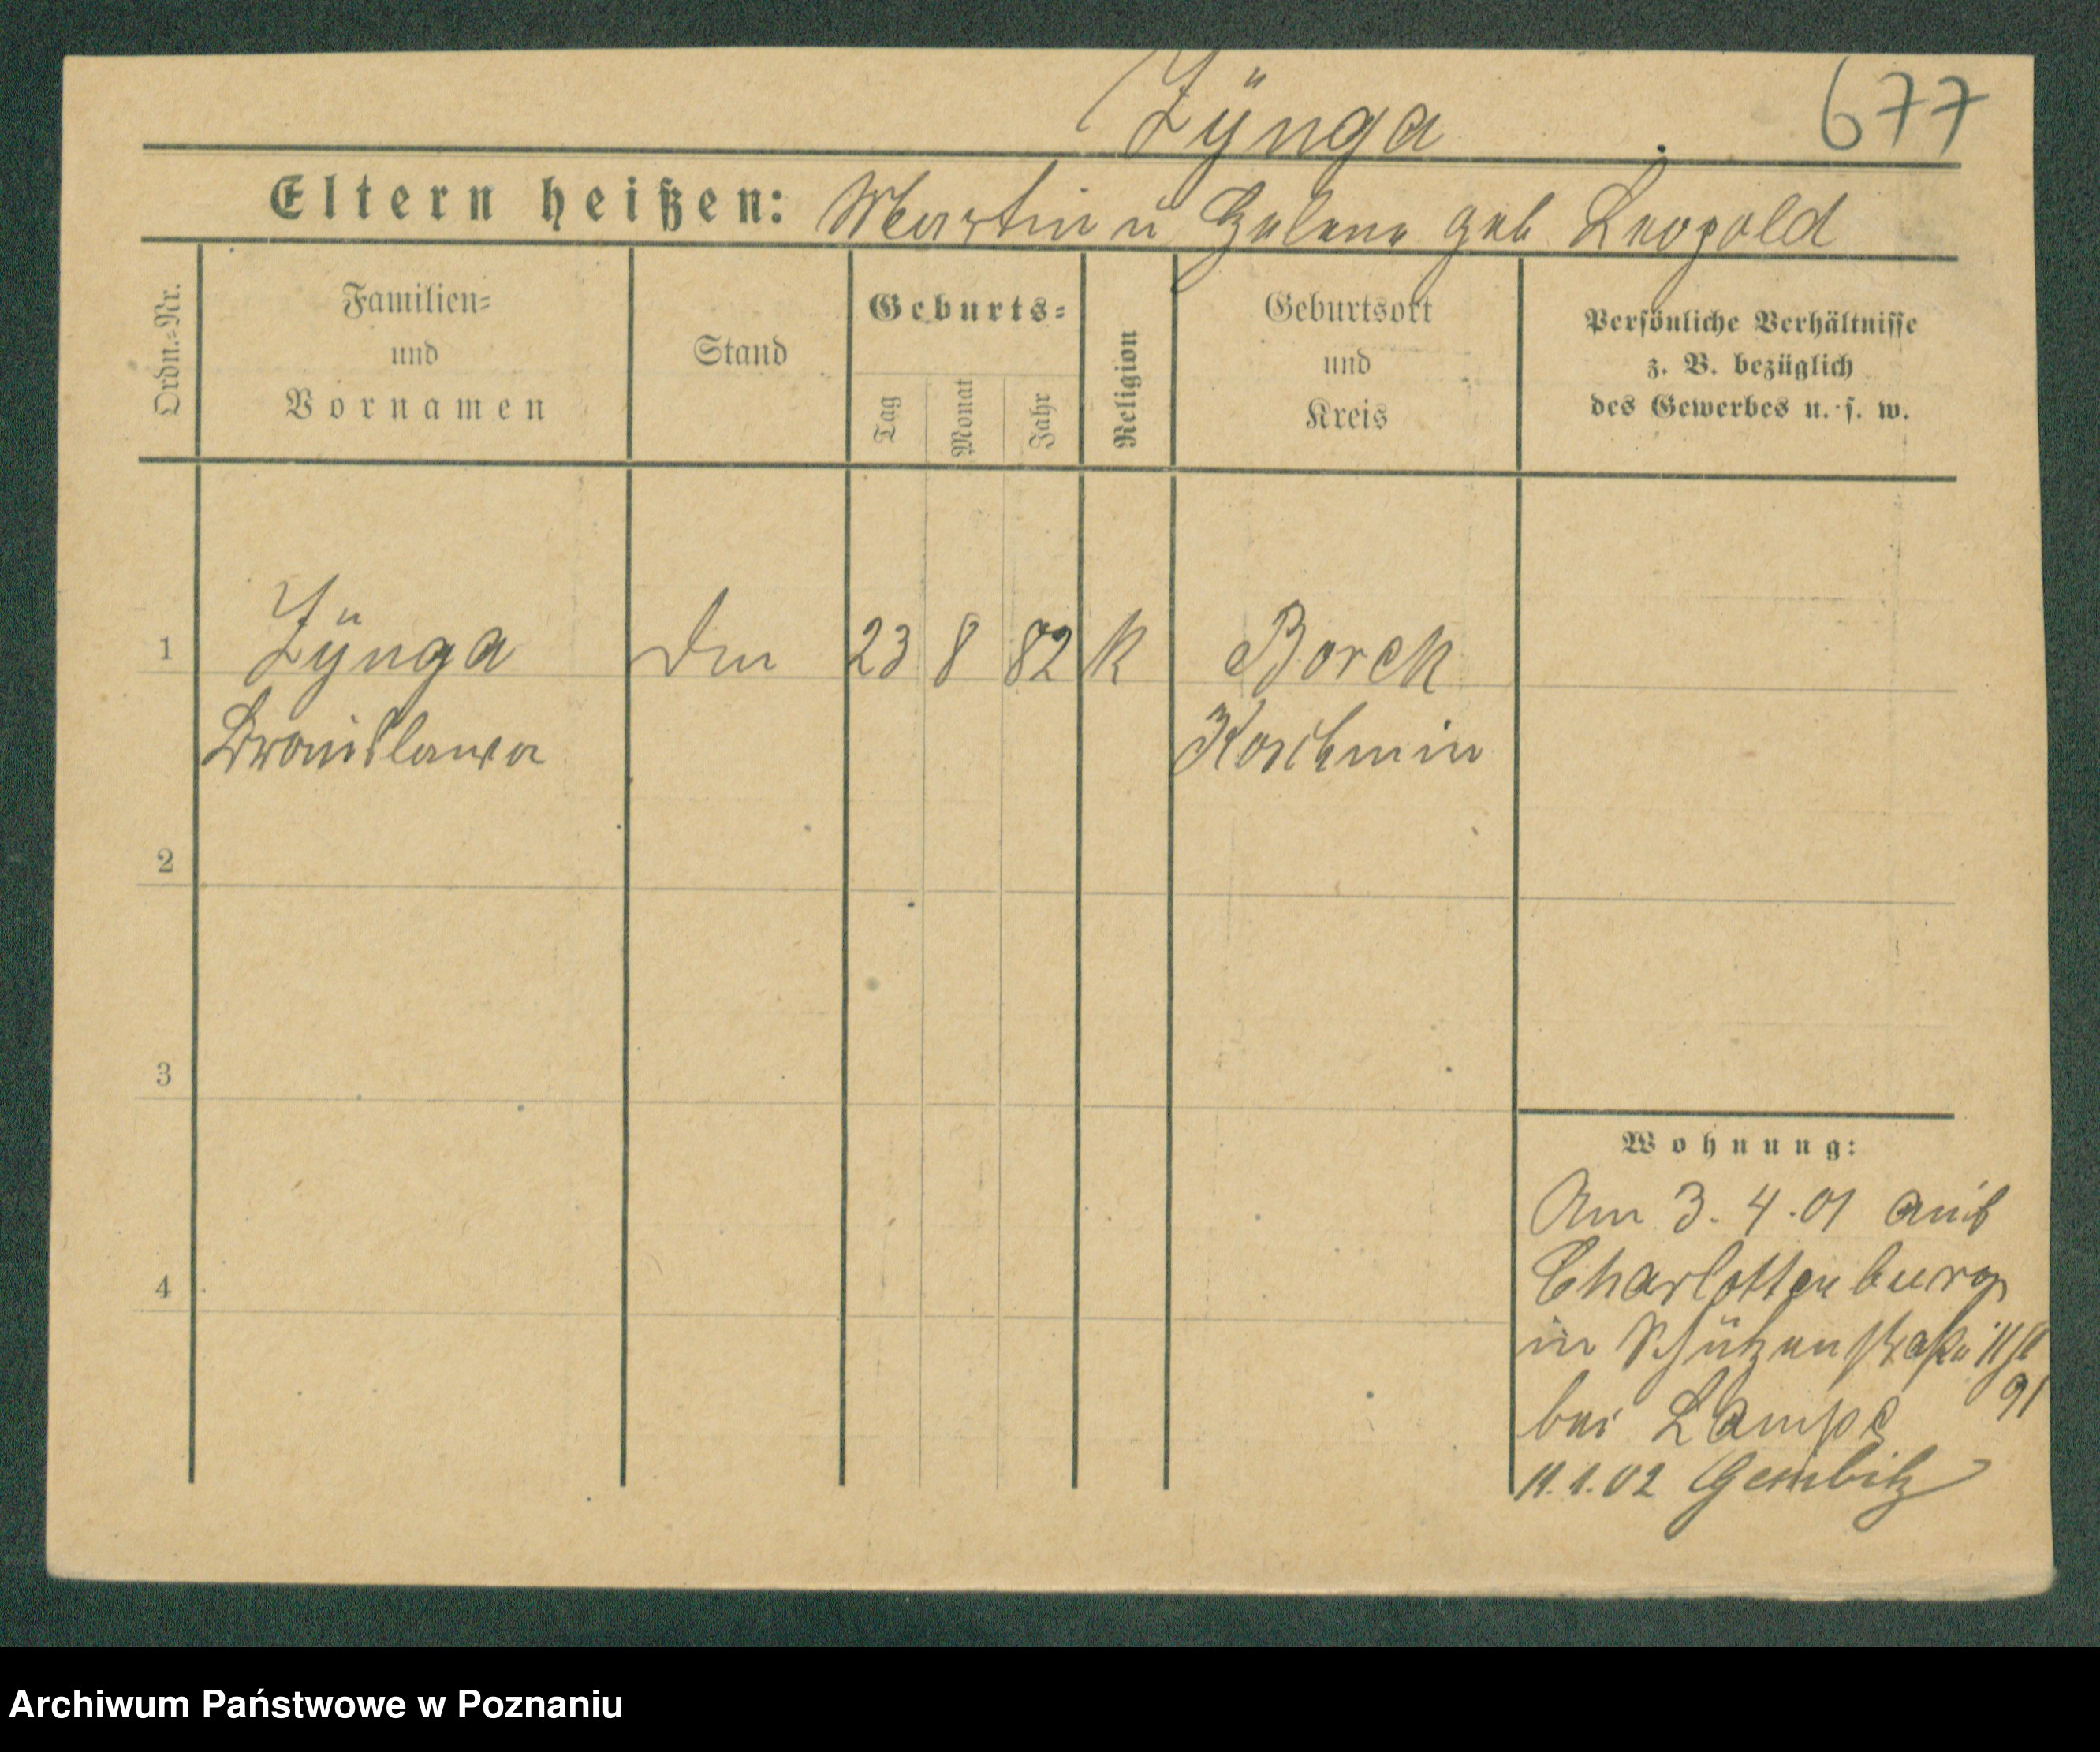 Zÿnga
677
Eltern heißen: Martin u Helene geb Leopold
Ordn.-Nr.
Familien-
und
Vornamen
Stand
Geburts-
Tag
Monat
Jahr
Religion
Geburtsort
und
Kreis
Persönliche Verhältnisse
z. B. bezüglich
des Gewerbes u. s. w.
1 Zÿnga 23 8 82 K Borek
Bronislawa Koschmin
2
3
4
Wohnung:
Am 3. 4. 01 aus
Charlottenburg
in Schützenstraße
bei Lampe
11.1.02 Gembitz
Archiwum Państwowe w Poznaniu